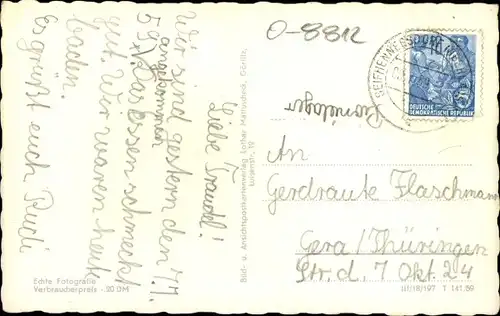 O-8812
Liebe Traudel!
Wir sind gestern den 7.7.
angekommen
59 Das essen schmeckt
gut. Wir waren heute
baden.
Es grüßt euch Rudi
SEIFHENNERSDORF
DEUTSCHE
DEMOKRATISCHE REPUBLIK
An
Gerdraute Flaschmann
Gera/Thüringen
Str. d. 7 Okt. 24
Bild- u. Ansichtspostkartenverlag Lothar Martusheck, Görlitz,
Echte Fotografie
Verbraucherpreis -.20 DM
III/18/197 T 141.59